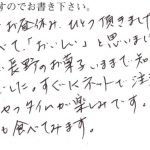 すのでお書き下さい。
お昼休み、ひとつ頂きまし
べて、「おいしい」と思いま
長野のお菓子いままで知
した。すぐにネットで注
ィタイムが楽しみです。
も食べてみます。